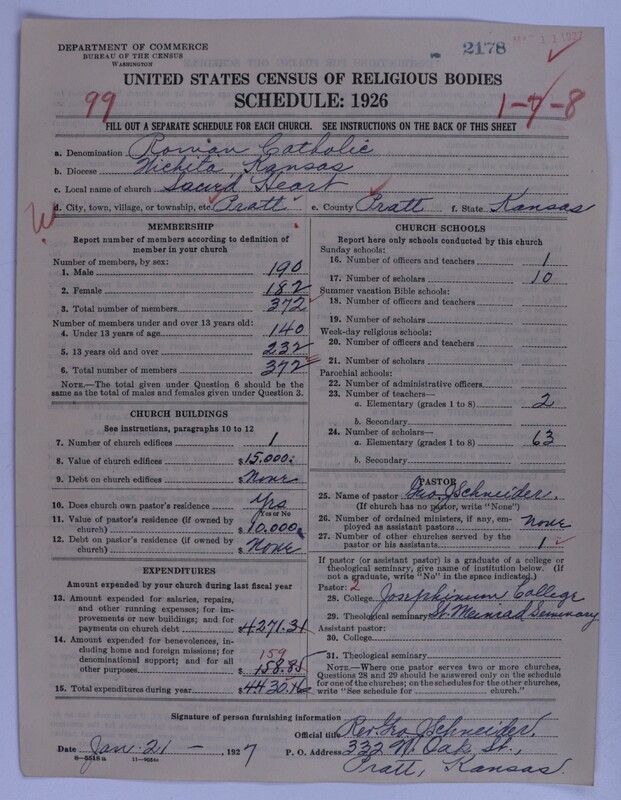 DEPARTMENT OF COMMERCE
BUREAU OF THE CENSUS
WASHINGTON
2178
UNITED STATES CENSUS OF RELIGIOUS BODIES
SCHEDULE: 1926
99
1-7-8
FILL OUT A SEPARATE SCHEDULE FOR EACH CHURCH. SEE INSTRUCTIONS ON THE BACK OF THIS SHEET
a. Denomination Roman Catholic
b. Diocese Wichita, Kansas
c. Local name of church Sacred Heart
d. City, town, village, or township, etc. Pratt e. County Pratt f. State Kansas
MEMBERSHIP
Report number of members according to definition of
member in your church
Number of members, by sex:
1. Male 190
2. Female 182
3. Total number of members 372
Number of members under and over 13 years old:
4. Under 13 years of age 140
5. 13 years old and over 232
6. Total number of members 372
NOTE.—The total given under Question 6 should be
same as the total of males and females given under Question 3.
CHURCH BUILDINGS
See instructions, paragraphs 10 to 12
7. Number of church edifices 1
8. Value of church edifices $15.000.
9. Debt on church edifices $None
10. Does church own pastor's residence Yes
Yes or No
11. Value of pastor's residence (if owned by
church) $10.000.
12. Debt on pastor's residence (if owned by
church) $None
EXPENDITURES
Amount expended by your church during last fiscal year
13. Amount expended for salaries, repairs,
and other running expenses; for im-
provements or new buildings; and for
payments on church debt 4271.31
14. Amount expended for benevolences, in-
cluding home and foreign missions; for
denominational support; and for all
other purposes 159
$158.85
15. Total expenditures during year $4430.16
CHURCH SCHOOLS
Report here only schools conducted by this church
Sunday schools:
16. Number of officers and teachers 1
17. Number of scholars 10
Summer vacation Bible schools:
18. Number of officers and teachers
19. Number of scholars
Week-day religious schools:
20. Number of officers and teachers
21. Number of scholars
Parochial schools:
22. Number of administrative officers
23. Number of teachers—
a. Elementary (grades 1 to 8) 2
b. Secondary
24. Number of scholars—
a. Elementary (grades 1 to 8) 63
b. Secondary
PASTOR
25. Name of pastor Geo J Schneider.
(If church has no pastor, write "None")
26. Number of ordained ministers, if any, em-
ployed as assistant pastors None
27. Number of other churches served by the
pastor or his assistants 1
If pastor (or assistant pastor) is a graduate of a college or
theological seminary, give name of institution below. (If
not a graduate, write "No" in the space indicated.)
Pastor: 2
28. College Josephinum College
29. Theological seminary St Meinrad Seminary
Assistant pastor:
30. College
31. Theological seminary
NOTE.—Where one pastor serves two or more churches,
Questions 28 and 29 should be answered only on the schedule
for one of the churches; on the schedules for the other churches,
write "See schedule for church."
Signature of person furnishing information Rev. Geo Schneider,
Official title
Date Jan. 21 — , 1927
P. O. Address 332 N. Oak St.,
Pratt, Kansas.
8-5518 a